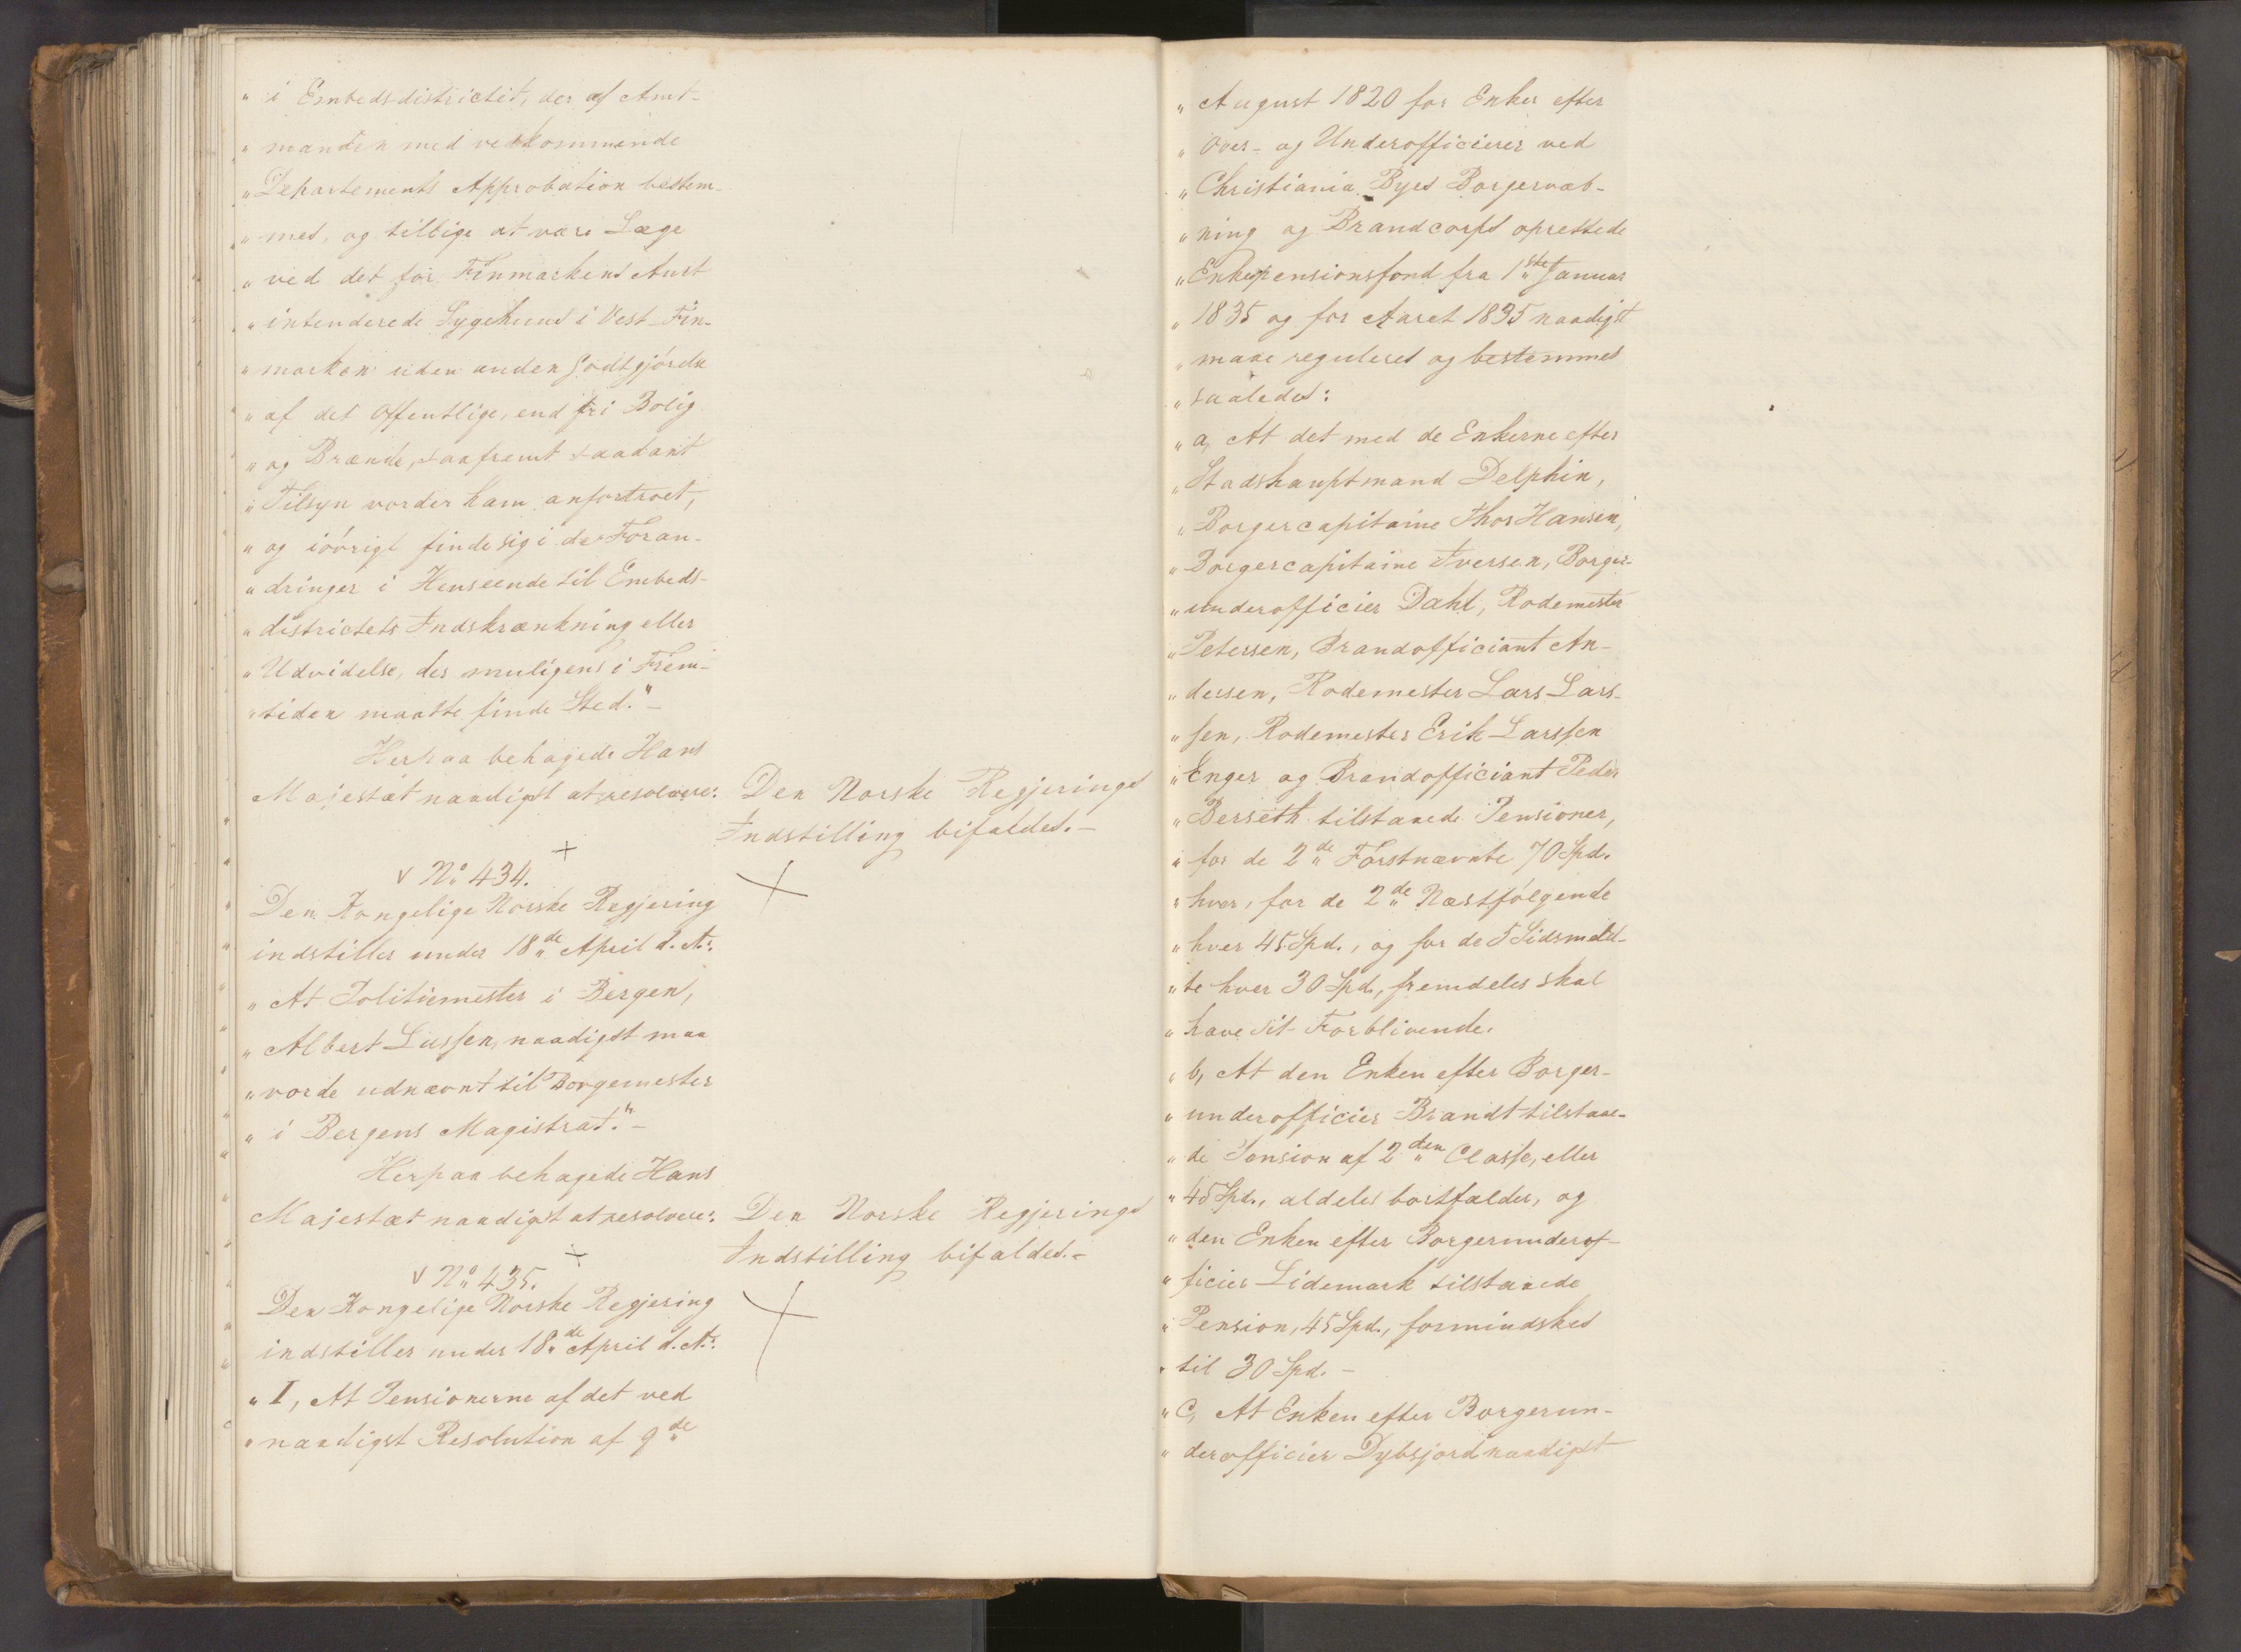 " i Embedsdistrictet, der af Amt-
" manden med vedkommende
" Departements Approbation bestem-
" mes, og tillige at være Læge
" ved det for Finmarkens Amt
" intenderede Sygehuus i Vest-Fin-
" marken uden anden Godtgjörelse
" af det Offentlige, end fri Bolig
" og Brænde, saafremt saadant
" Tilsyn vorder ham anfortroet,
" og iövrigt finde sig i de Foran-
" dringer i Henseende til Embeds-
" districtets Indskrænkning eller
" Udvidelse, der muligens i Frem-
" tiden maatte finde Sted." -
Herpaa behagede Hans
Majestæt naadigst at resolvere:
Den Norske Regjerings
Indstilling bifaldes. -
No 434.
Den Kongelige Norske Regjering
indstiller under 18de April d. A:
" At Politiemester i Bergen,
" Albert Lassen, naadigst maa
" vorde udnævnt til Borgemester
" i Bergens Magistrat." -
Herpaa behagede Hans
Majestæt naadigst at resolvere:
Den Norske Regjerings
Indstilling bifaldes. -
No 435.
Den Kongelige Norske Regjering
indstiller under 18de April d. A:
" I, At Pensionerne af det ved
" naadigst Resolution af 9de
" August 1820 for Enker efter
" Over- og Underofficierer ved
" Christiania Byes Borgervæb-
" ning og Brandcorps oprettede
" Enkepensionsfond fra 1ste Januar
" 1835 og for Aaret 1835 naadigst
" maae reguleres og bestemmes
" saaledes:
" a, At det med de Enkerne efter
" Stadshauptmand Delphin,
" Borgercapitaine Thor Hansen,
" Borgercapitaine Iversen, Borger-
" underofficier Dahl, Rodemester
" Petersen, Brandofficiant An-
" dersen, Rodemester Lars Lars-
" sen, Rodemester Erik Larssen
" Enger og Brandofficiant Peder
" Berseth tilstaaede Pensioner,
" for de 2de Förstnævnte 70 Spd.
" hver, for de 2de Næstfölgende
" hver 45 Spd., og for de 5 Sidsmeld-
" te hver 30 Spd., fremdeles skal
" have sit Forblivende.
" b, At den Enken efter Borger-
" underofficier Brandt tilstaae-
" de Pension af 2den Classe, eller
" 45 Spd., aldeles bortfalder, og
" den Enken efter Borgerunderof-
" ficier Lidemark tilstaaede
" Pension, 45 Spd., formindskes
" til 30 Spd. -
" c, At Enken efter Borgerun-
" derofficier Dybsjord naadigst